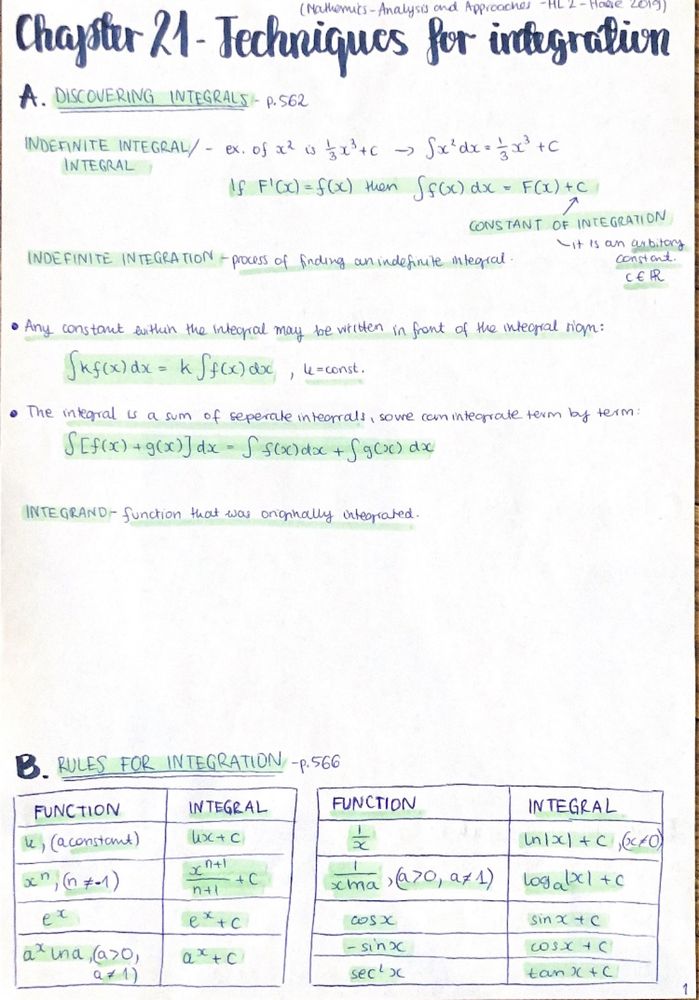 (Mathematics - Analysis and Approaches - HL 2 - Haese 2019)
Chapter 21 - Techniques for integration
A. DISCOVERING INTEGRALS - p.562
INDEFINITE INTEGRAL/ - ex. of x² is ⅓x³+c → ∫x²dx = ⅓x³ + C
INTEGRAL
If F'(x) = f(x) then ∫f(x) dx = F(x) + C
CONSTANT OF INTEGRATION
it is an arbitary
INDEFINITE INTEGRATION - process of finding an indefinite integral.
constant.
C ∈ ℝ
• Any constant within the integral may be written in front of the integral sign:
∫kf(x) dx = k ∫f(x) dx , k = const.
• The integral is a sum of seperate integrals, so we can integrate term by term:
∫[f(x) + g(x)] dx = ∫ f(x) dx + ∫ g(x) dx
INTEGRAND - function that was originally integrated.
B. RULES FOR INTEGRATION - p.566
FUNCTION INTEGRAL FUNCTION INTEGRAL
k, (a constant) kx + C 1/x ln|x| + C, (x≠0)
xⁿ, (n ≠ -1) xⁿ⁺¹/n+1 + C 1/x ln a, (a>0, a≠1) logₐ|x| + C
eˣ eˣ + C cos x sin x + C
aˣ ln a, (a>0, aˣ + C - sin x cos x + C
a ≠ 1) sec² x tan x + C
1